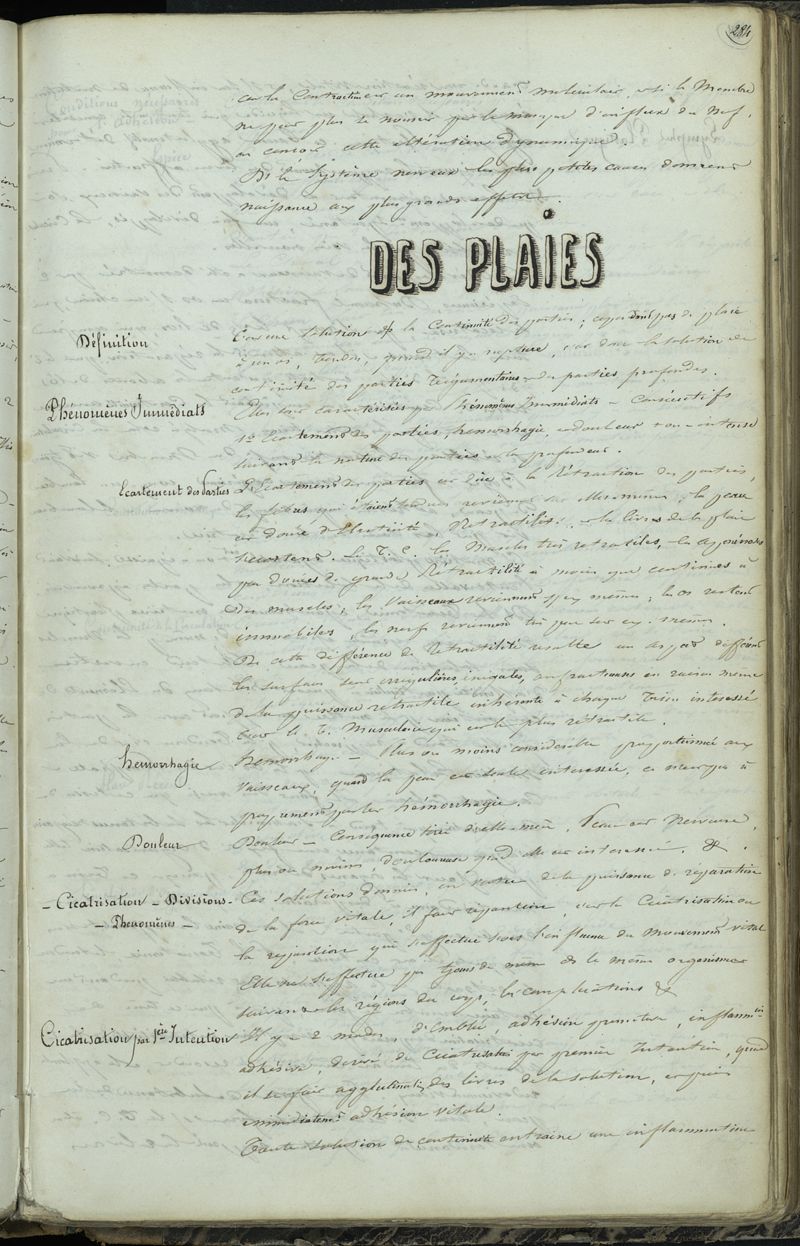 284
car la contraction est un mouvement moléculaire, et si le Membre
ne peut plus se nourir par le manque d'influx du nerf,
on conçoit cette altération dynamique.
De le Système nerveux les plus petites causes donnent
naissance aux plus grands effets.
DES PLAIES
Définition
C'est une solution de la Continuité des parties; cependant pas de plaie
quand il y a rupture, c'est donc la solution de
continuité des parties Tégumentaires et des parties profondes.
Phénomènes Immédiats
Elles sont caractérisées par Phénomènes Immédiats et Consécutifs
1° Ecartement des parties, hemorrhagie, et douleur + ou - intense
suivant la nature des parties et la profondeur.
Ecartement des Parties
L'Ecartement des parties est dûe à la Rétraction des parties,
les fibres qui étaient tendues reviennent sur elles mêmes; la peau
est douée d'Elasticité, Retractilité, et les livres de la plaie
s'écartent. Le T. C. les Muscles très retractiles, les aponévroses
pas douées de grande Rétractilité à moins que continues à
des muscles; les Vaisseaux reviennent sur eux mêmes; les os restent
immobiles, les nerfs reviennent très peu sur eux-mêmes.
De cette différence de Retractilité résulte un aspect différent
les surfaces sont irrégulières, inégales, anfractueuses en raison même
de la puissance retractile inhérente à chaque Tissu intéressé
c'est le T. Musculaire qui est le plus rétractile.
hémorrhagie
hemorrhagie - Plus ou moins considérable proportionnée aux
Vaisseaux, quand la peau est seule interessée, ce n'est pas à
proprement parler hémorrhagie.
Douleur
Douleur - Conséquence tirée d'elle-même, Peau est Nerveuse,
plus ou moins, douloureuse quand elle est interessée. &.
- Cicatrisation - Divisions -
- Phénomènes -
Ces solutions données, en vertu de la puissance de réparation
de la force vitale, il faut réparation, c'est la Cicatrisation ou
la réparation qui s'effectue sous l'influence du Mouvement vital
Elle ne s'effectue pas toujours de même ds le même organisme
suivant les régions du corps, les complications &
Cicatrisation par 1ère Intention
Il y a 2 modes, d'emblée, adhésion primitive, inflammon
adhésive, dérivé de Cicatrisation par première Intention, quand
il se fait agglutination des livres de la solution, et puis
immédiatement adhésion vitale.
Toute solution de continuité entraine une inflammation